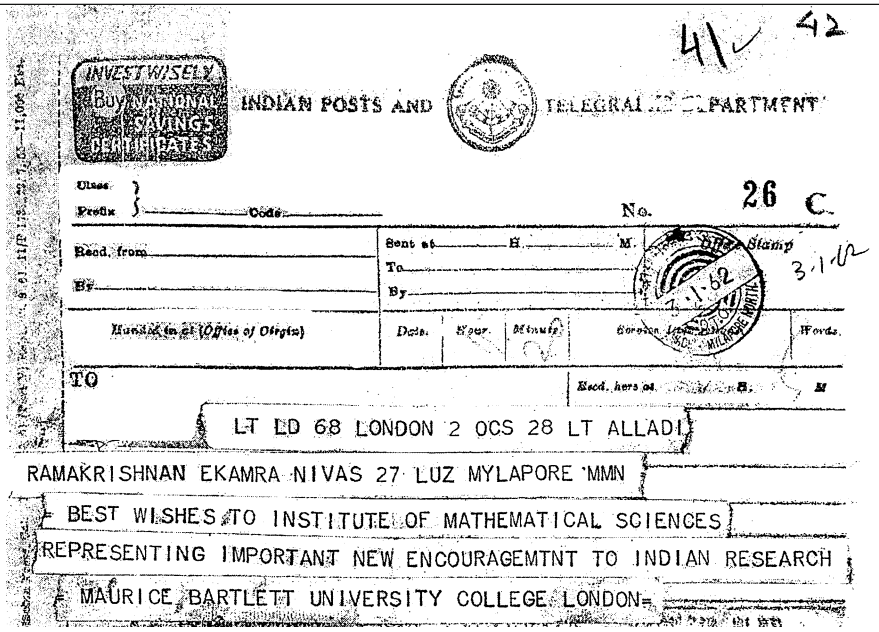 41 42
INVEST WISELY
Buy NATIONAL
SAVINGS
CERTIFICATES
INDIAN POSTS AND DEPARTMENT
Class
Prefix Code
No. 26 C.
Recd. from Sent at H. M. Office Stamp
To
By By
3.1.62 3.1.62
MILAPORE
Handed in at (Office of Origin) Date. Hour. Minute Words.
TO Recd. here at H. M
LT LD 68 LONDON 2 OCS 28 LT ALLADI
RAMAKRISHNAN EKAMRA NIVAS 27 LUZ MYLAPORE MMN
= BEST WISHES TO INSTITUTE OF MATHEMATICAL SCIENCES
REPRESENTING IMPORTANT NEW ENCOURAGEMTNT TO INDIAN RESEARCH
= MAURICE BARTLETT UNIVERSITY COLLEGE LONDON=